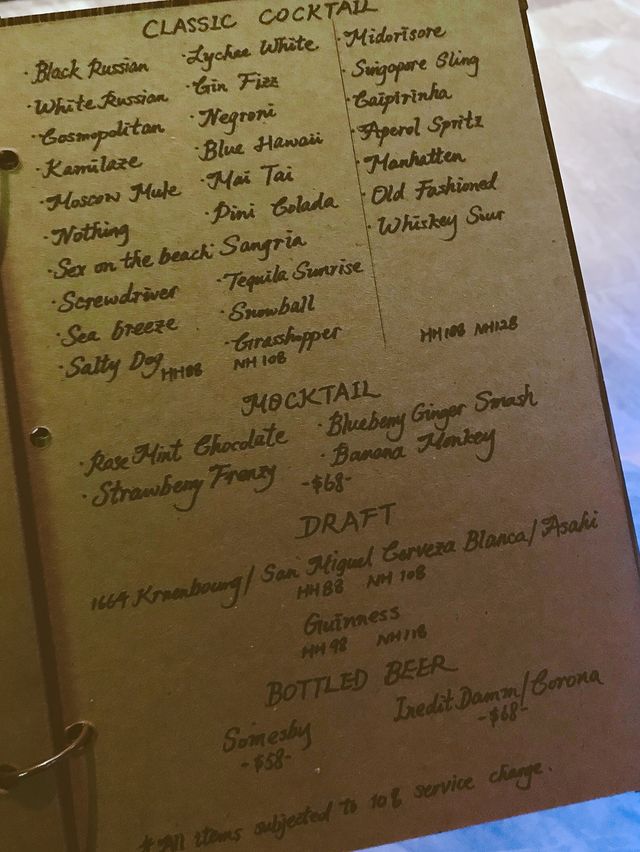 CLASSIC COCKTAIL
· Black Russian
· White Russian
· Cosmopolitan
· Kamikaze
· Moscow Mule
· Nothing
· Sex on the beach
· Screwdriver
· Sea breeze
· Salty Dog
· Lychee White
· Gin Fizz
· Negroni
· Blue Hawaii
· Mai Tai
· Pini Colada
· Sangria
· Tequila Sunrise
· Snowball
· Grasshopper
HH88 NH108
· Midorisore
· Singapore Sling
· Caipirinha
· Aperol Spritz
· Manhatten
· Old Fashioned
· Whiskey Sour
HH108 NH128
MOCKTAIL
· Rose Mint Chocolate
· Strawberry Frenzy
· Blueberry Ginger Smash
· Banana Monkey
-$68-
DRAFT
1664 Kronenbourg/ San Miguel Cerveza Blanca/ Asahi
HH88 NH108
Guinness
HH98 NH118
BOTTLED BEER
Somesby
-$58-
Inedit Damm/ Corona
-$68-
*All items subjected to 10% service change.